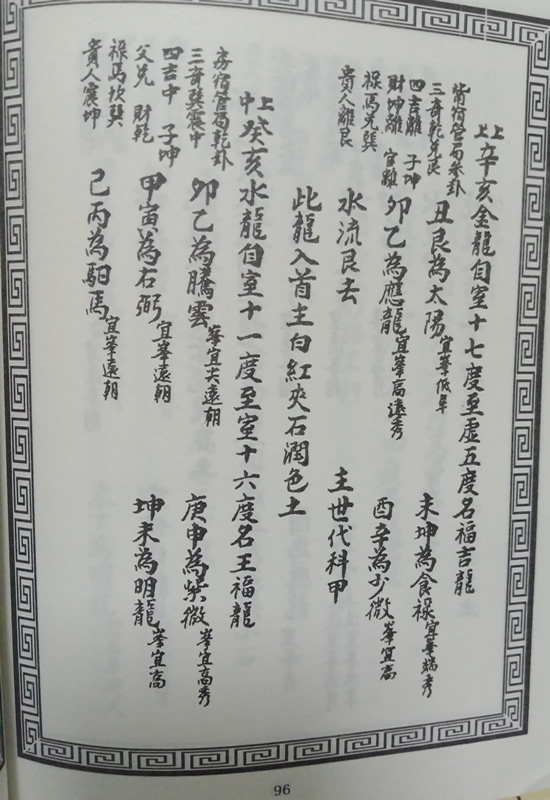 上上 辛亥金龍自室十七度至虛五度名福吉龍
觜宿管局參卦
三奇乾兌艮
四吉離 子坤
財坤離 官離
祿馬兌巽
貴人離艮
丑艮為太陽 宜峯低阜 未坤為食祿 宜峯端秀
卯乙為應龍 宜峯高遠秀 酉辛為少微 峯宜高
水流艮去 主世代科甲
此龍入首主白紅夾石潤色土
上中 癸亥水龍自室十一度至室十六度名王福龍
房宿管局乾卦
三奇巽震中
四吉中 子坤
父兌 財乾
祿馬坎巽
貴人震坤
卯乙為騰雲 峯宜尖遠朝 庚申為紫微 峯宜高秀
甲寅為右弼 宜峯遠朝 坤未為明龍 峯宜高
己丙為馹馬 宜峯遠朝
96